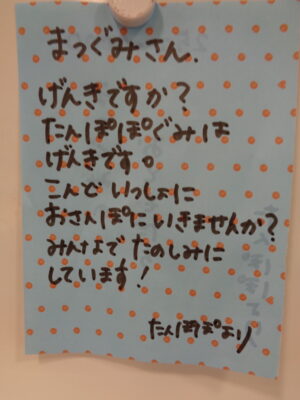 まつぐみさん.
げんきですか?
たんぽぽぐみは
げんきです。
こんど いっしょに
おさんぽに いきませんか?
みんなで たのしみに
しています!
たんぽぽより